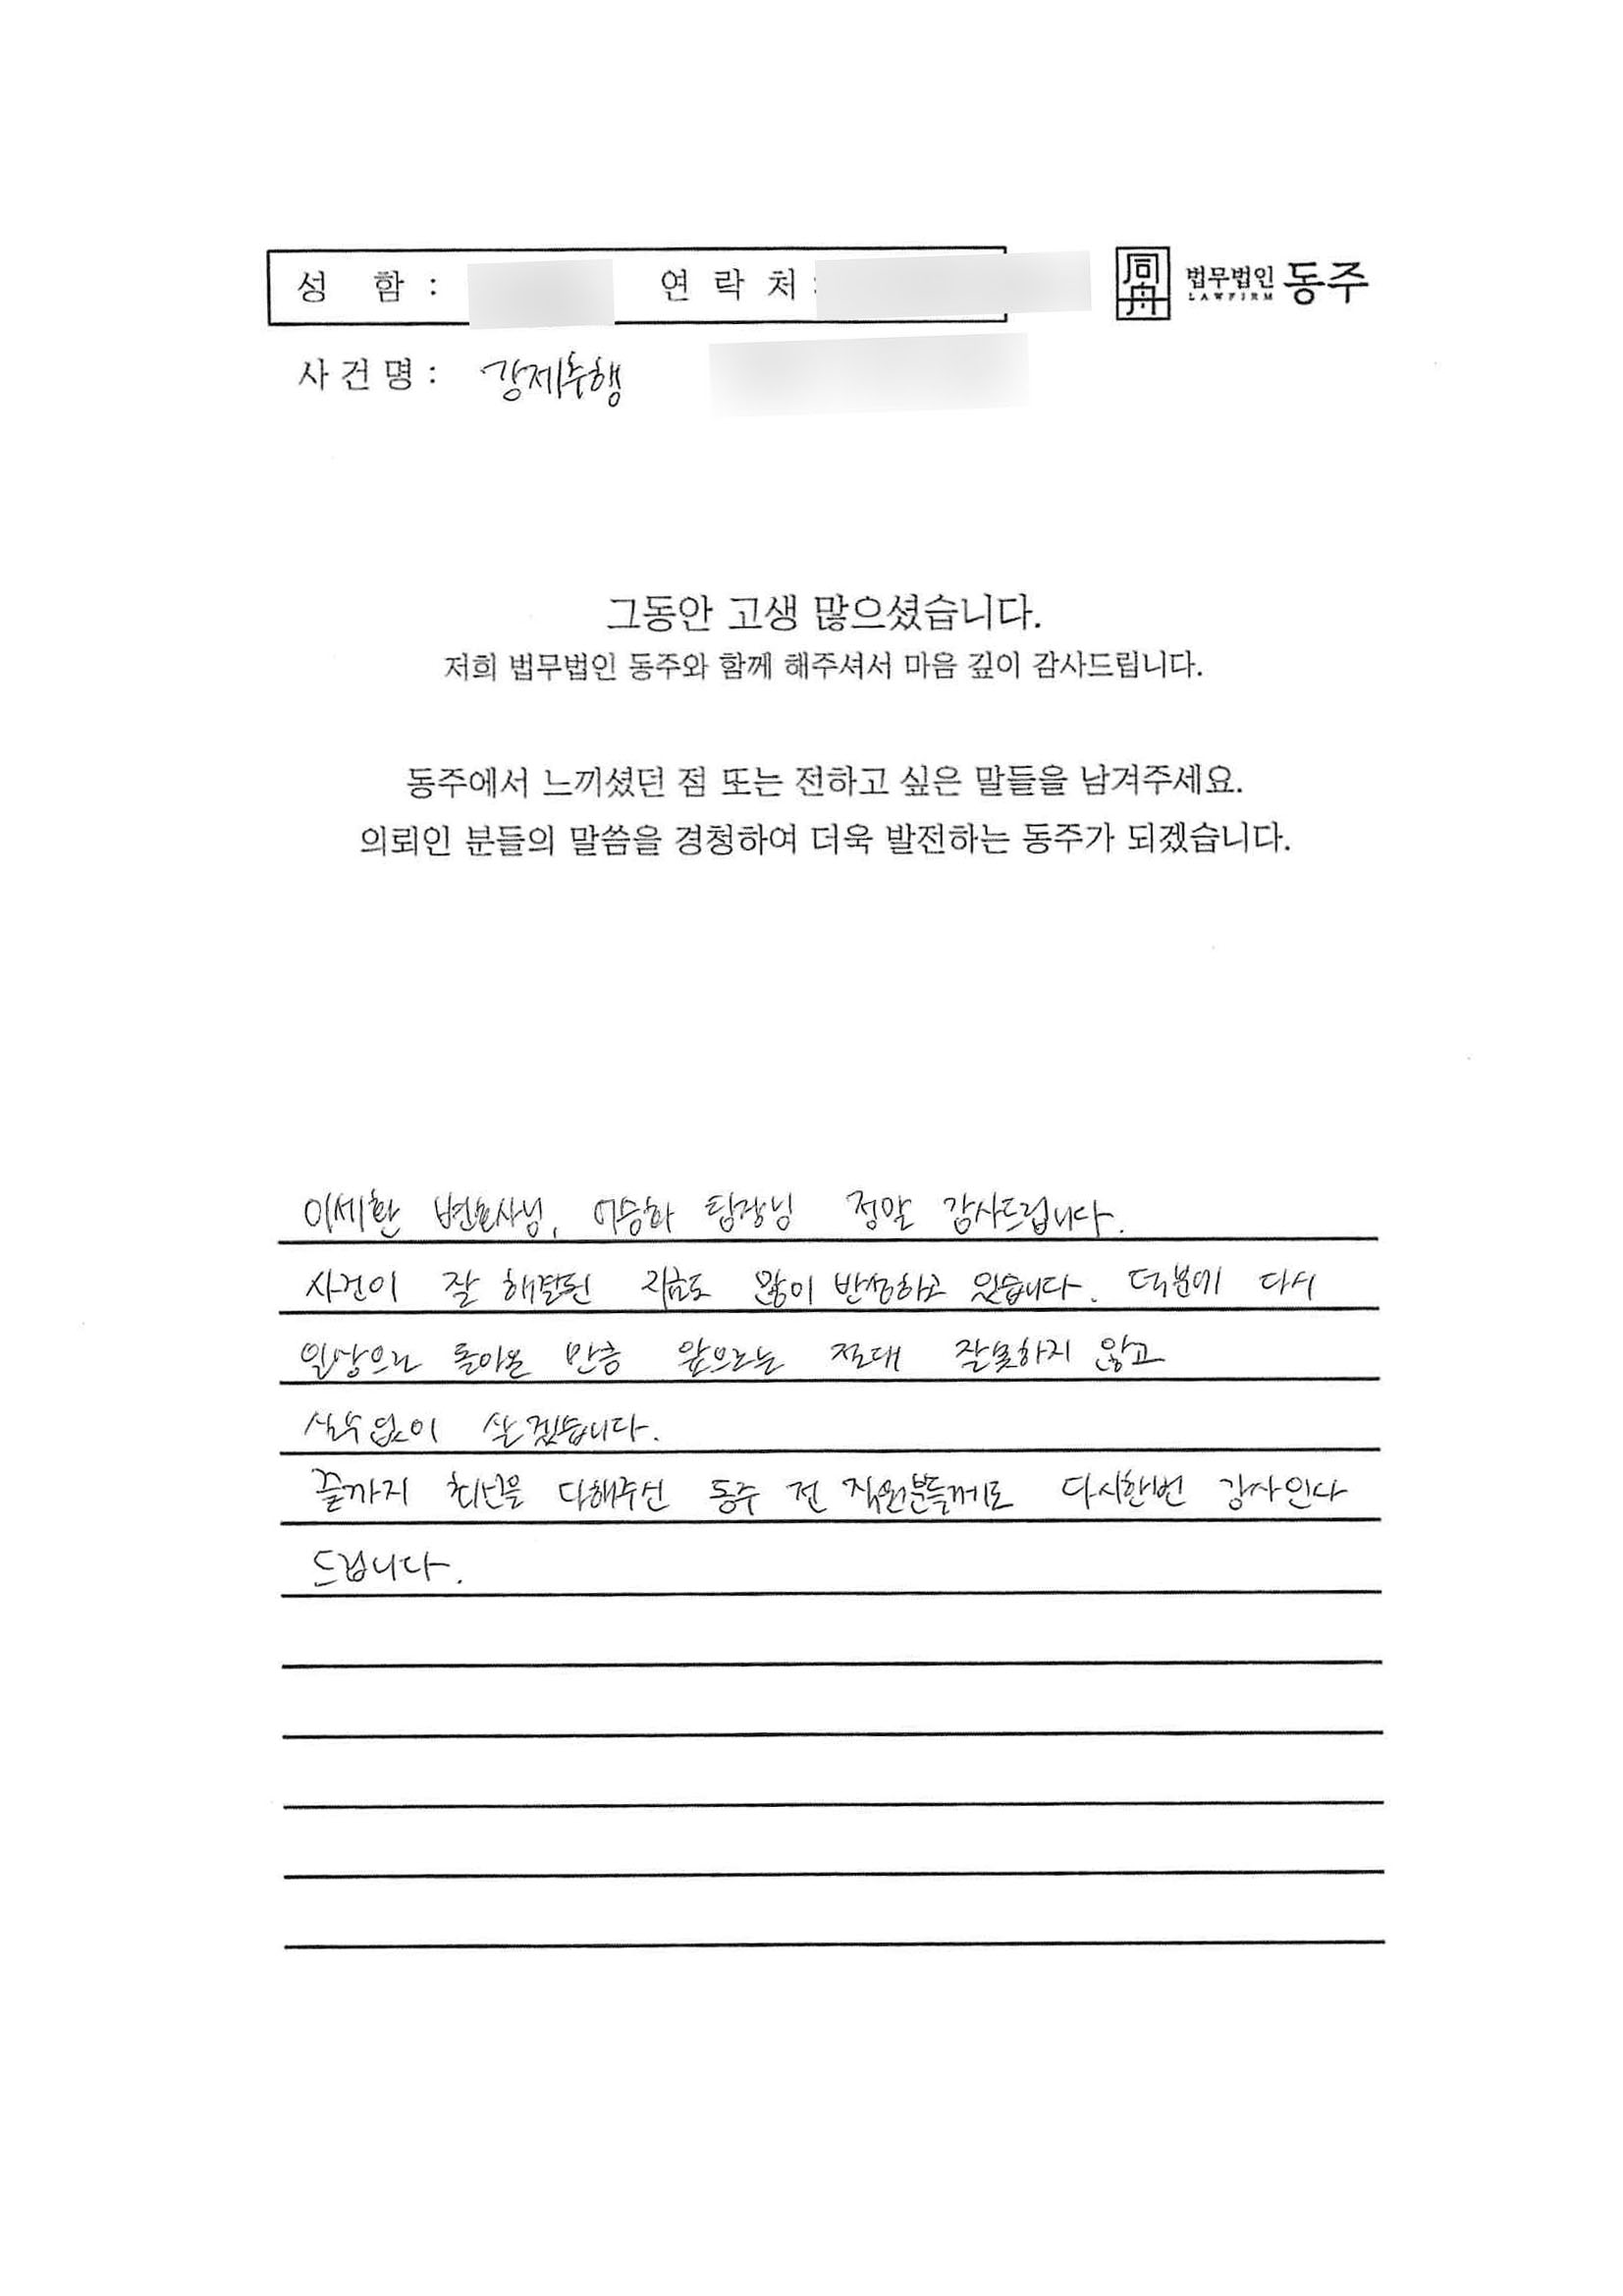 성 함 : 연 락 처 :
同舟 법무법인 동주
LAWFIRM
사건명 : 강제추행
그동안 고생 많으셨습니다.
저희 법무법인 동주와 함께 해주셔서 마음 깊이 감사드립니다.
동주에서 느끼셨던 점 또는 전하고 싶은 말들을 남겨주세요.
의뢰인 분들의 말씀을 경청하여 더욱 발전하는 동주가 되겠습니다.
이세환 변호사님, 이승하 팀장님 정말 감사드립니다.
사건이 잘 해결된 지금도 많이 반성하고 있습니다. 덕분에 다시
일상으로 돌아온 만큼 앞으로는 절대 잘못하지 않고
실수없이 살겠습니다.
끝까지 최선을 다해주신 동주 전 직원분들께도 다시한번 감사인사
드립니다.